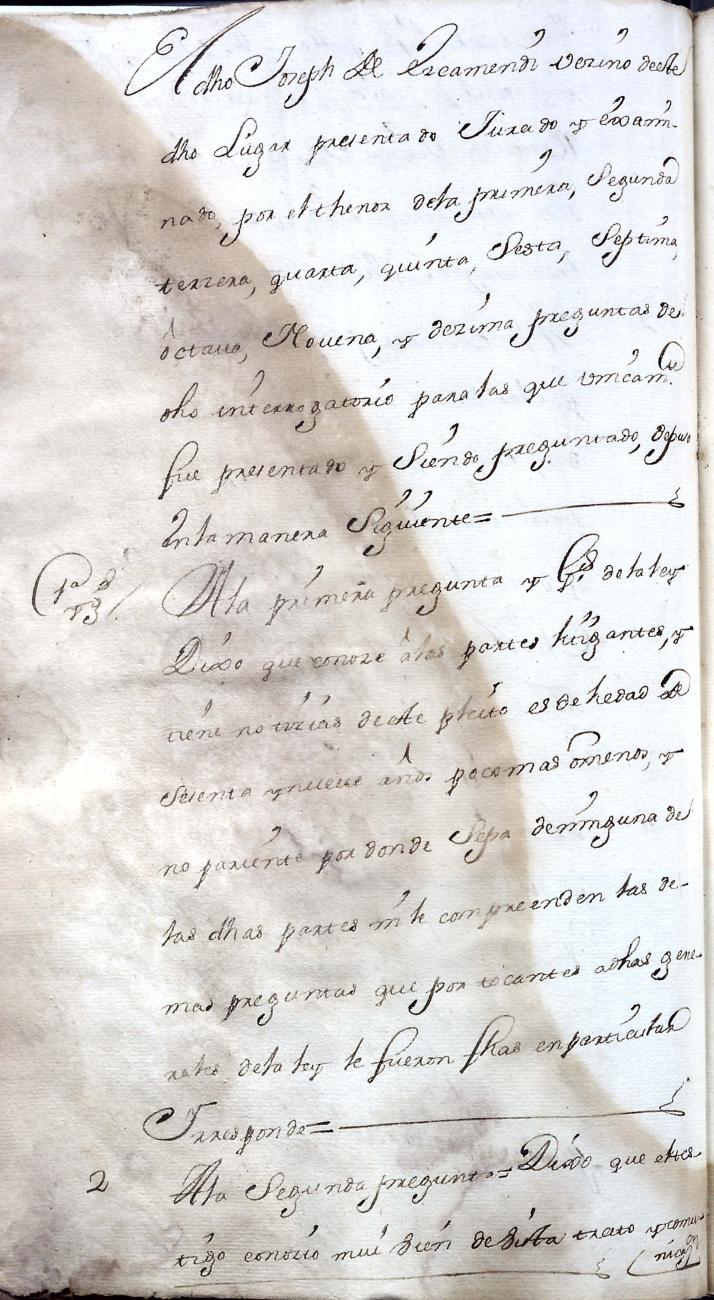 El dho Joseph de Ercamendi vezino deeste
dho Lugar presentado Jurado y exami-
nado, por el thenor dela primera, Segunda
terzera, quarta, quinta, Sesta, Septima,
octava, Novena, y dezima preguntas de
dho interrogatorio para las que unicam.te
fue presentado y Siendo preguntado, depuso
En la manera Siguiente=
1a preg
Ala primera pregunta y gs de la ley
Dixo que conoze alas partes litigantes, y
tiene notizias deeste pleito es de hedad de
sesenta y nueve años poco mas o menos, y
no pariente por donde Sepa deninguna de
las dhas partes ni le compreenden las de-
mas preguntas que por tocantes adhas gene-
rales dela ley le fueron fhas en particular
Irresponde=
2
Ala Segunda pregunta= Dixo que eltes
tigo conozio mui bien de vista trato y comu-
nicaon